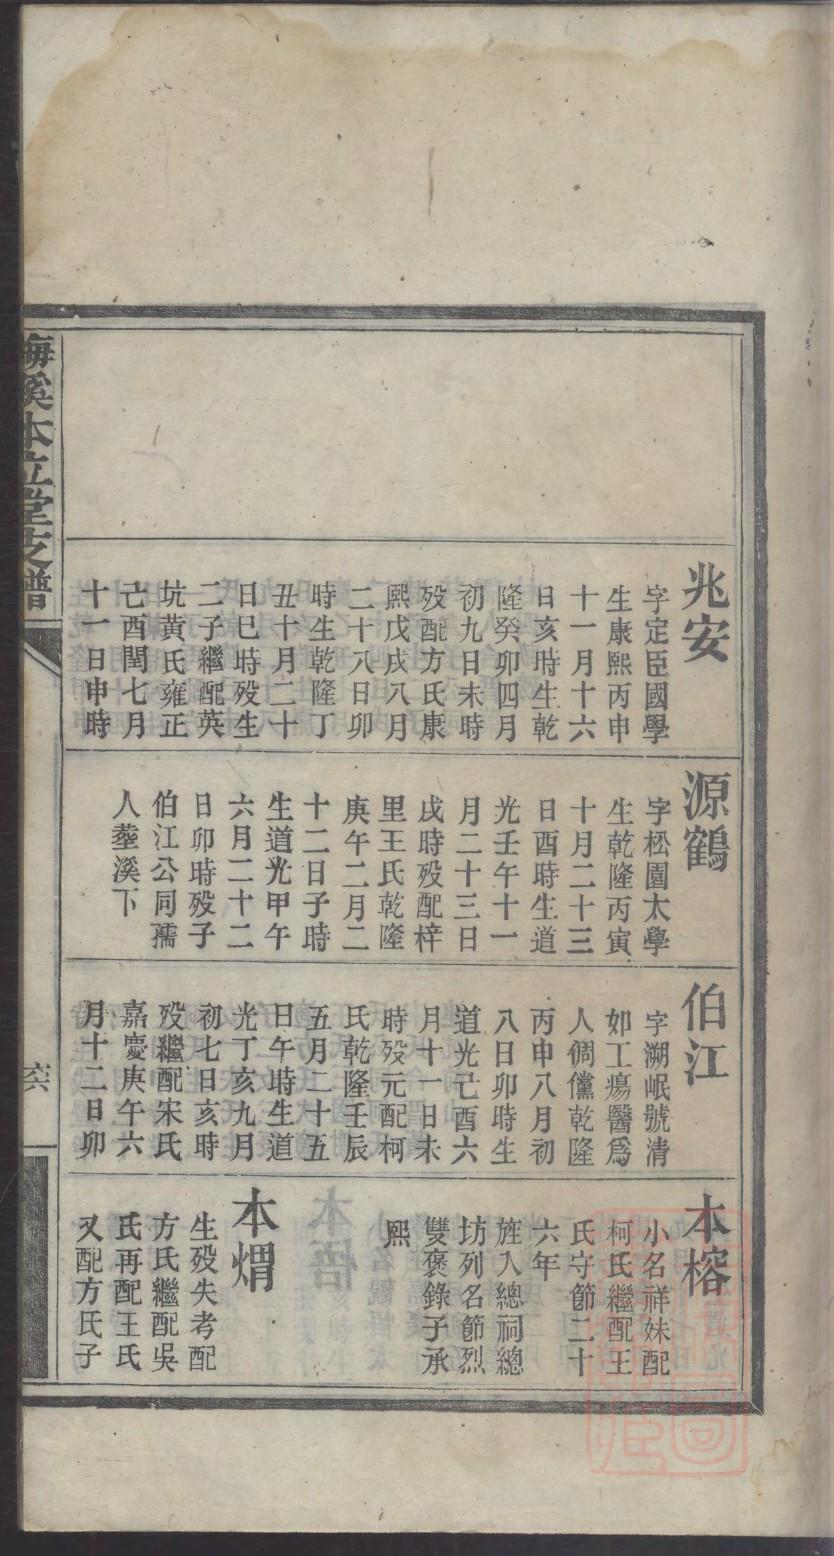 兆安
字定臣國學
生康熙丙申
十一月十六
日亥時生乾
隆癸卯四月
初九日未時
殁配方氏康
熙戊戌八月
二十八日卯
時生乾隆丁
丑十月二十
日巳時殁生
二子繼配英
坑黄氏雍正
己酉閏七月
十一日申時
源鶴
字松園太學
生乾隆丙寅
十月二十三
日酉時生道
光壬午十一
月二十三日
戌時殁配梓
里王氏乾隆
庚午二月二
十二日子時
生道光甲午
六月二十二
日卯時殁子
伯江公同孺
人塟溪下
伯江
字溯岷號清
如工瘍醫爲
人倜儻乾隆
丙申八月初
八日卯時生
道光己酉六
月十一日未
時殁元配柯
氏乾隆壬辰
五月二十五
日午時生道
光丁亥九月
初七日亥時
殁繼配宋氏
嘉慶庚午六
月十二日卯
本榕
小名祥妹配
柯氏繼配王
氏守節二十
六年
旌入總祠總
坊列名節烈
雙褒錄子承
熙
本焆
生殁失考配
方氏繼配吳
氏再配王氏
又配方氏子
梅溪本立堂支譜
六